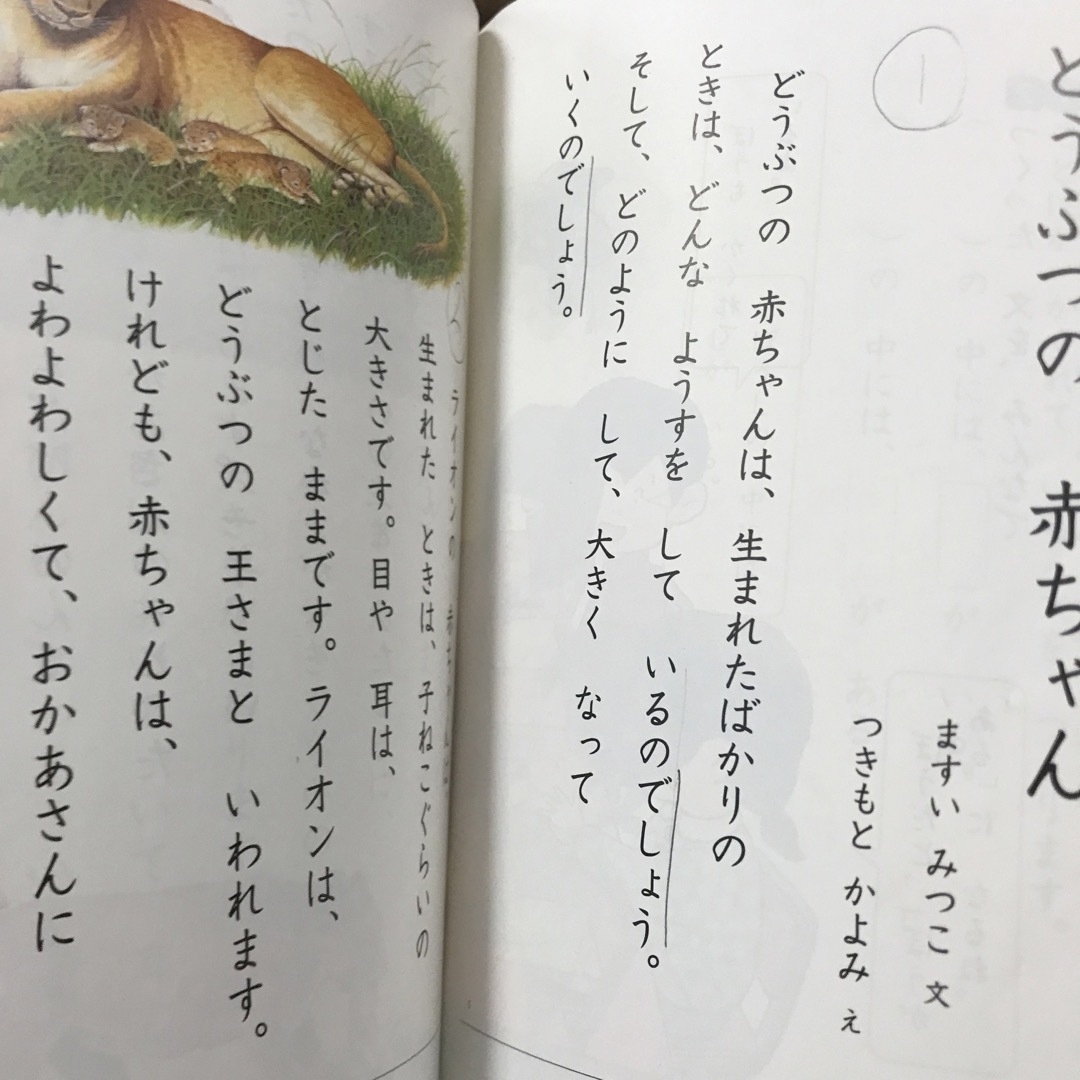 どうぶつの 赤ちゃん
ますい みつこ 文
つきもと かよみ え
1
どうぶつの 赤ちゃんは、生まれたばかりの
ときは、どんな ようすを して いるのでしょう。
そして、どのように して、大きく なって
いくのでしょう。
2
ライオンの 赤ちゃんは、
生まれた ときは、子ねこぐらいの
大きさです。目や 耳は、
とじた ままです。ライオンは、
どうぶつの 王さまと いわれます。
けれども、赤ちゃんは、
よわよわしくて、おかあさんに